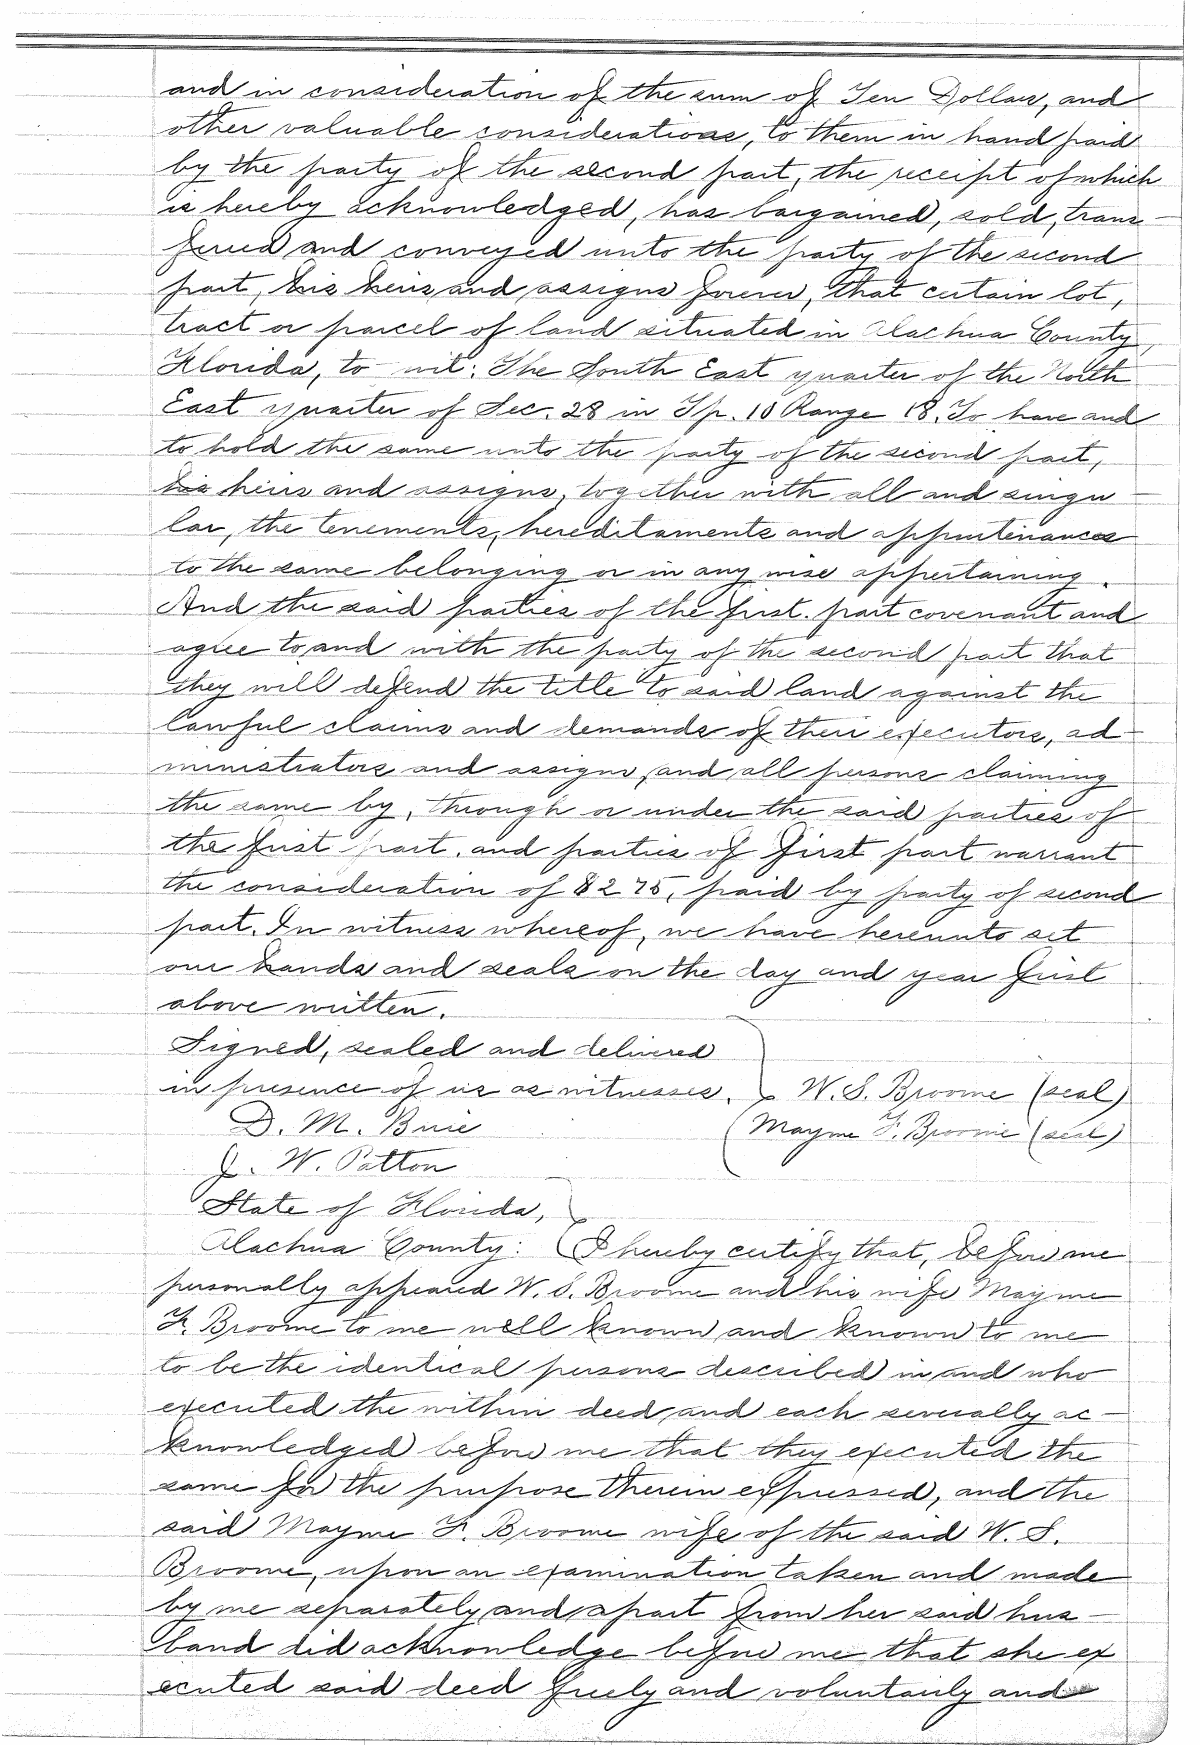 and in consideration of the sum of Ten Dollars, and
other valuable considerations, to them in hand paid
by the party of the second part, the receipt of which
is hereby acknowledged, has bargained, sold, trans-
ferred and conveyed unto the party of the second
part, his heirs and assigns forever, that certain lot,
tract or parcel of land situated in Alachua County,
Florida, to wit: The South East quarter of the North
East quarter of Sec. 28 in Tp. 10 Range 18. To have and
to hold the same unto the party of the second part,
his heirs and assigns, together with all and singu-
lar, the tenements, hereditaments and appurtenances
to the same belonging or in any wise appertaining.
And the said parties of the first part covenant and
agree to and with the party of the second part that
they will defend the title to said land against the
lawful claims and demands of their executors, ad-
ministrators and assigns, and all persons claiming
the same by, through or under the said parties of
the first part, and parties of first part warrant
the consideration of $275, paid by party of second
part. In witness whereof, we have hereunto set
our hands and seals on the day and year first
above written.
Signed, sealed and delivered
in presence of us as witnesses. W. S. Broome (seal)
D. M. Buie Mayme F. Broome (seal)
J. W. Patton
State of Florida,
Alachua County: I hereby certify that, before me
personally appeared W. S. Broome and his wife Mayme
F. Broome to me well known and known to me
to be the identical persons described in and who
executed the within deed and each severally ac-
knowledged before me that they executed the
same for the purpose therein expressed, and the
said Mayme F. Broome wife of the said W. S.
Broome, upon an examination taken and made
by me separately and apart from her said hus-
band did acknowledge before me that she ex
ecuted said deed freely and voluntarily and